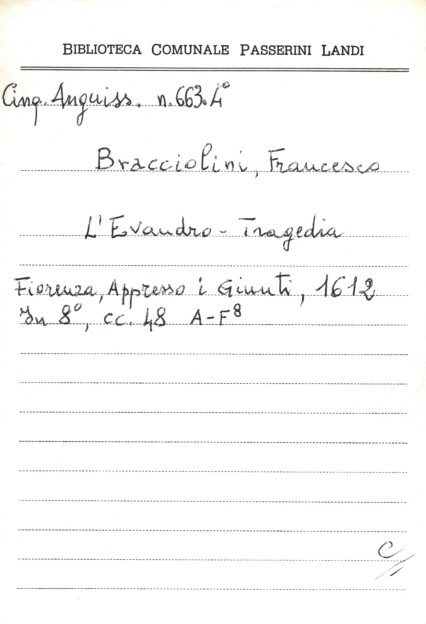 BIBLIOTECA COMUNALE PASSERINI LANDI
Cinq. Anguiss. n. 663.4°
Bracciolini, Francesco
L'Evandro - Tragedia
Fiorenza, Appresso i Giunti, 1612
In 8°, cc. 48 A-F⁸
C/